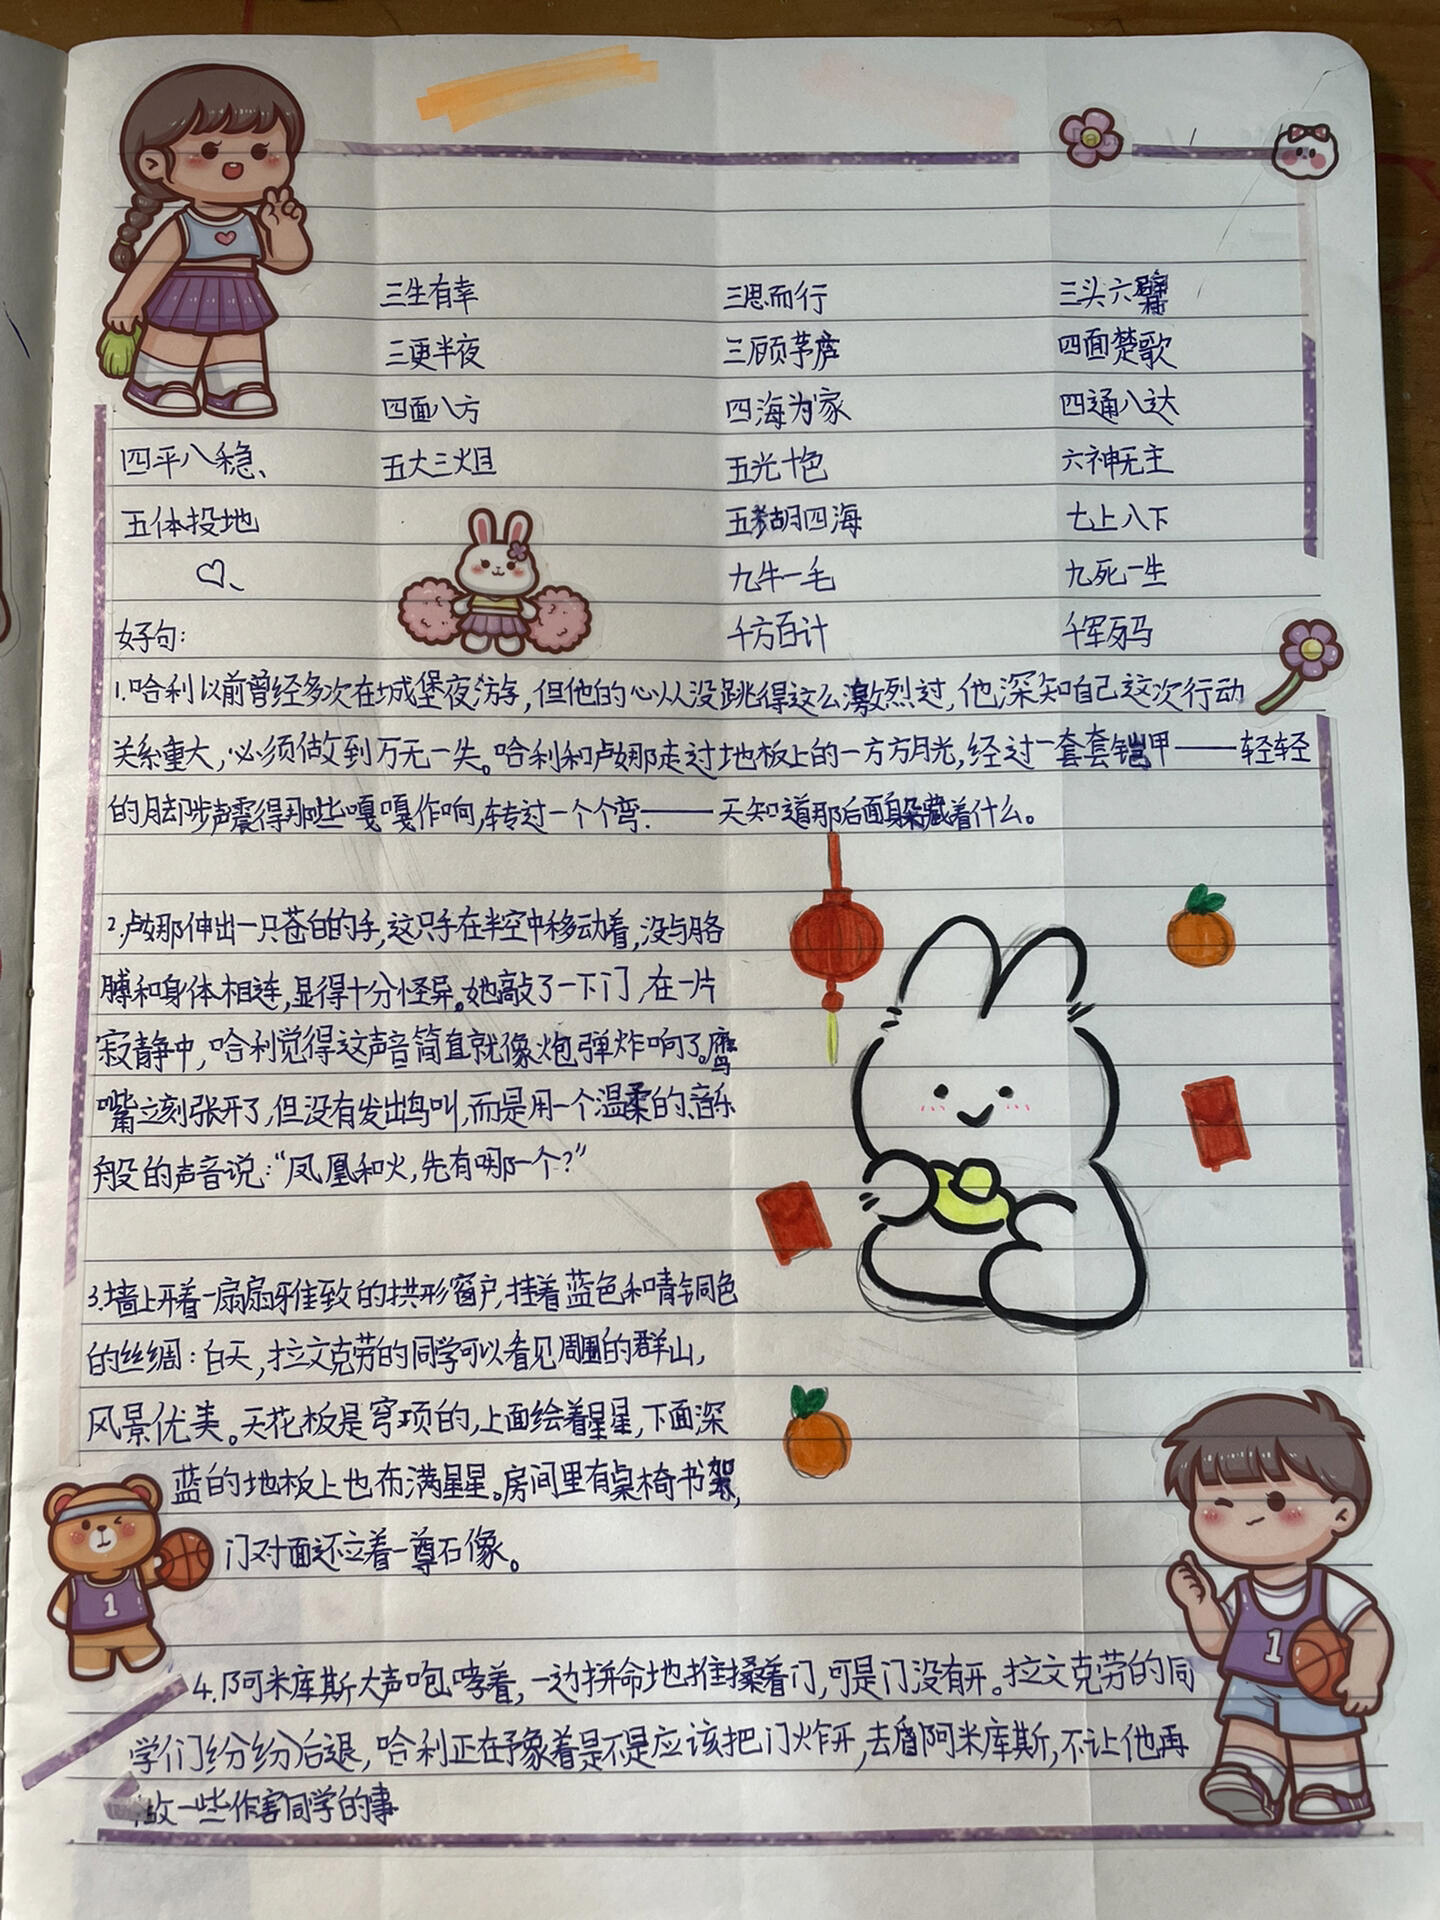 三生有幸 三思而行 三头六臂
三更半夜 三顾茅庐 四面楚歌
四面八方 四海为家 四通八达
四平八稳、 五大三粗 五光十色 六神无主
五体投地 五湖四海 七上八下
九牛一毛 九死一生
好句: 千方百计 千军万马
1.哈利以前曾经多次在城堡夜游,但他的心从没跳得这么激烈过,他深知自己这次行动
关系重大,必须做到万无一失。哈利和卢娜那走过地板上的一方方月光,经过一套套铠甲——轻轻
的脚步声震得那些嘎嘎作响,转过一个个弯.——天知道那后面躲藏着什么。
2.卢娜那伸出一只苍白的手,这只手在半空中移动着,没与胳
膊和身体相连,显得十分怪异。她敲了一下门,在一片
寂静中,哈利觉得这声音简直就像炮弹炸响了。鹰
嘴立刻张开了,但没有发出鸟叫,而是用一个温柔的、音乐
般的声音说:“凤凰和火,先有哪一个?”
3.墙上开着一扇扇雅致的拱形窗户,挂着蓝色和青铜色
的丝绸:白天,拉文克劳的同学可以看见周围的群山,
风景优美。天花板是穹顶的,上面绘着星星,下面深
蓝的地板上也布满星星。房间里有桌椅书架,
门对面还立着一尊石像。
4.阿米库斯大声咆哮着,一边拼命地推搡着门,可是门没有开。拉文克劳的同
学们纷纷后退,哈利正在予象着是不是应该把门炸开,去盾阿米库斯,不让他再
做一些作害同学的事
1
1